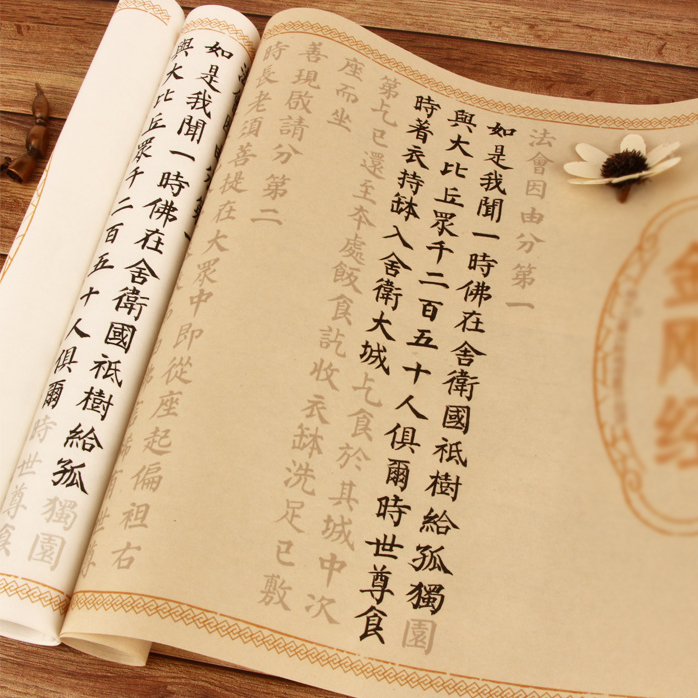 金刚经
法會因由分第一
如是我聞一時佛在舍衛國祇樹給孤獨園
與大比丘眾千二百五十人俱爾時世尊食
時着衣持缽入舍衛大城乞食於其城中次
第乞已還至夲處飯食訖收衣缽洗足已敷
座而坐
善現啟請分第二
時長老須菩提在大眾中即從座起偏袒右
如是我聞一時佛在舍衛國祇樹給孤獨園
與大比丘眾千二百五十人俱爾時世尊食